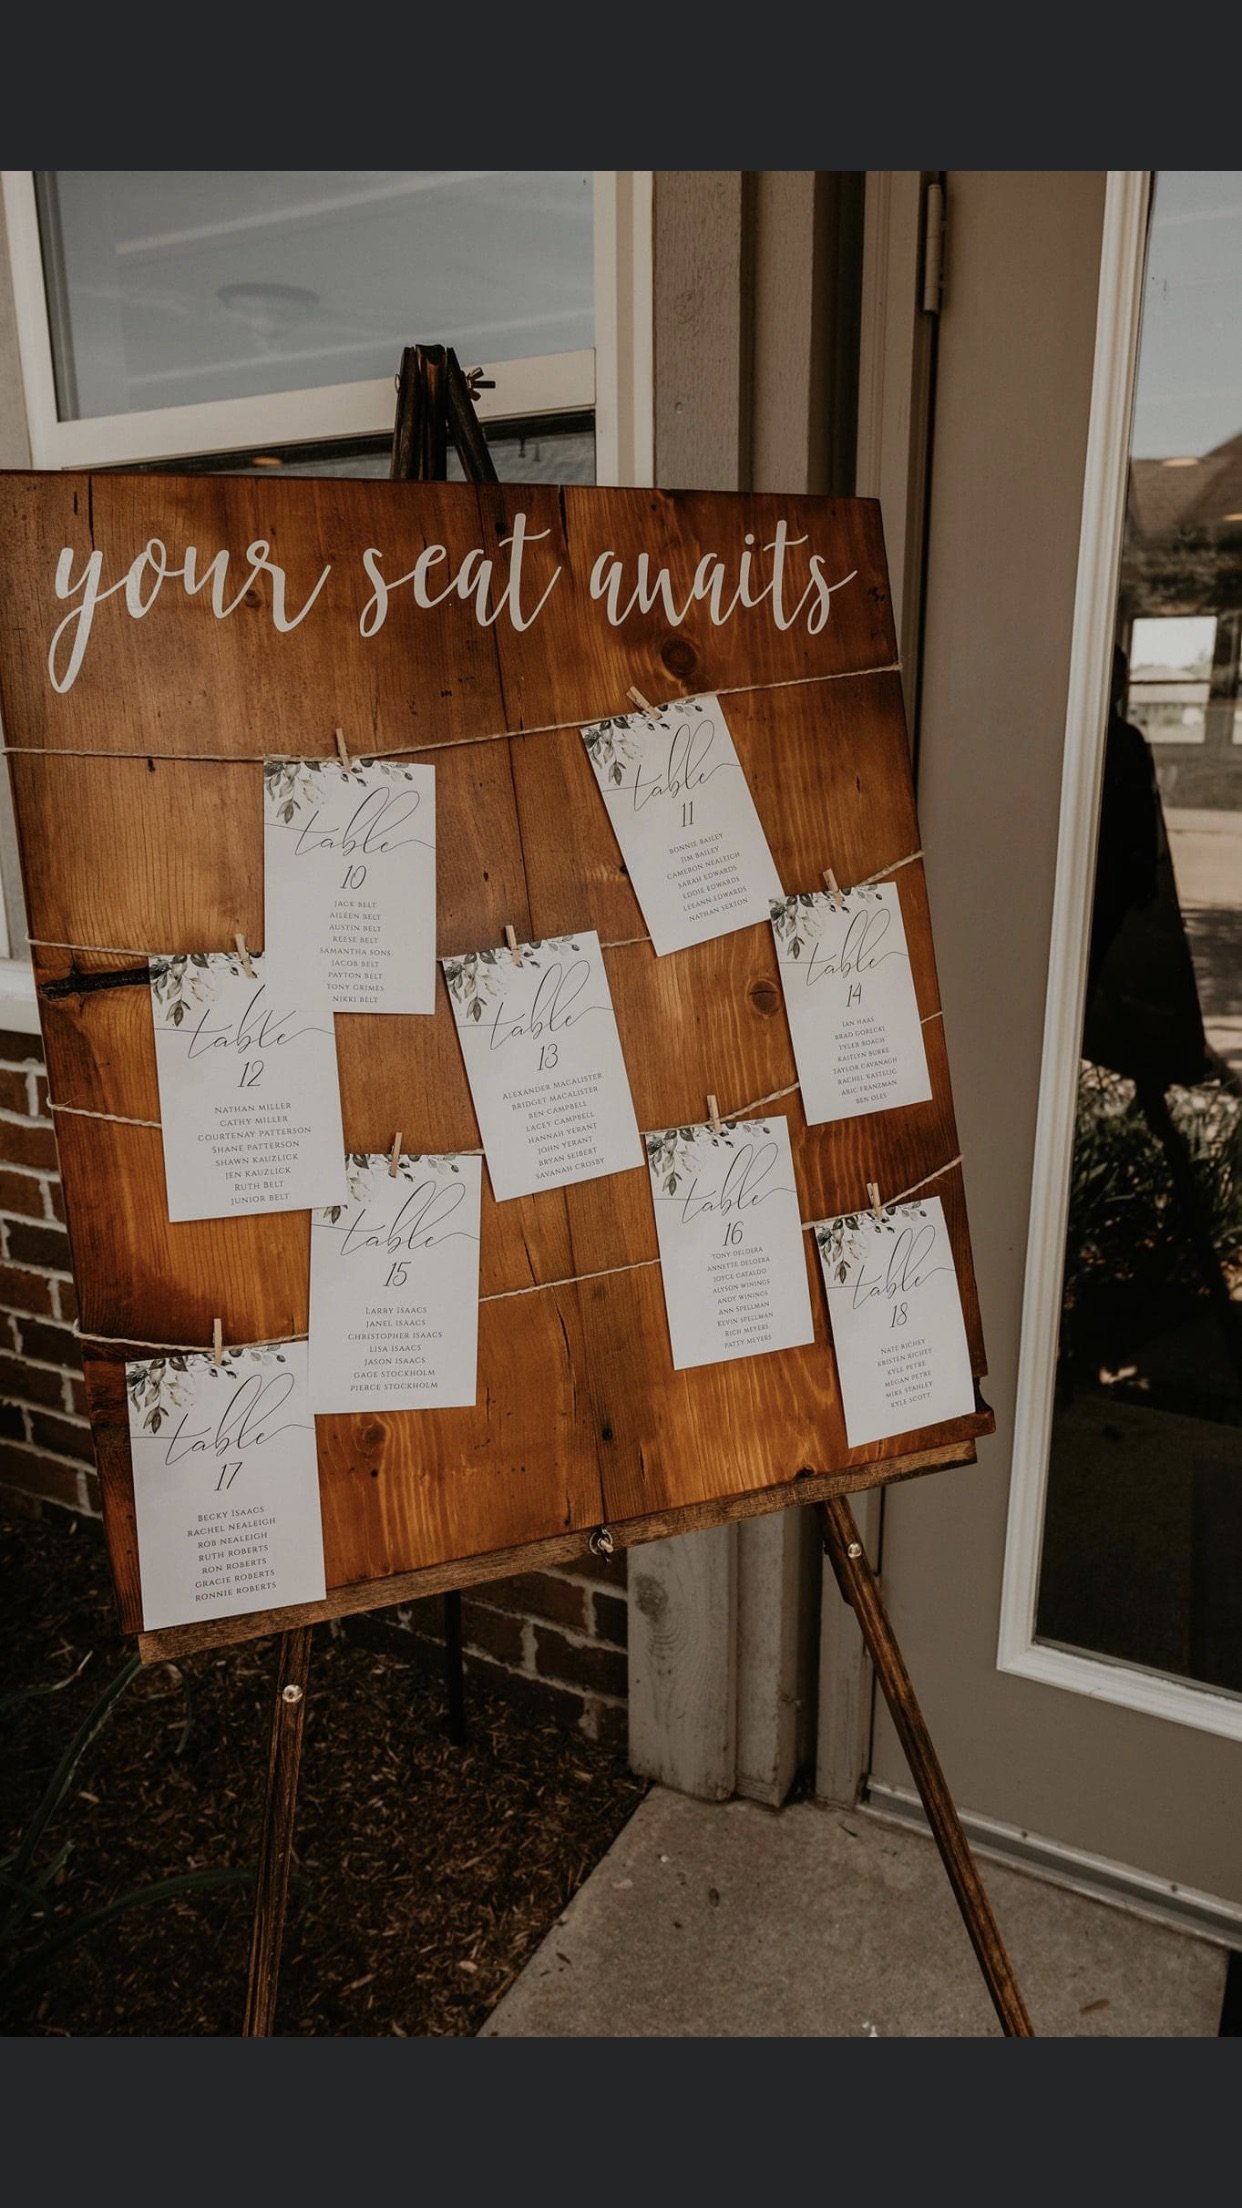 your seat awaits
table
10
JACK BELT
AILEEN BELT
AUSTIN BELT
REESE BELT
SAMANTHA SONS
JACOB BELT
PAYTON BELT
TONY GRIMES
NIKKI BELT
table
11
BONNIE BAILEY
JIM BAILEY
CAMERON NEALEIGH
SARAH EDWARDS
EDDIE EDWARDS
LEEANN EDWARDS
NATHAN SEXTON
table
12
NATHAN MILLER
CATHY MILLER
COURTENAY PATTERSON
SHANE PATTERSON
SHAWN KAUZLICK
JEN KAUZLICK
RUTH BELT
JUNIOR BELT
table
13
ALEXANDER MACALISTER
BRIDGET MACALISTER
BEN CAMPBELL
LACEY CAMPBELL
HANNAH YERANT
JOHN YERANT
BRYAN SEIBERT
SAVANAH CROSBY
table
14
IAN HAAS
BRAD GORECKI
TYLER ROACH
KAITLYN BURKE
TAYLOR CAVANAGH
RACHEL KASTELIC
ARIC FRANZMAN
BEN OLES
table
15
LARRY ISAACS
JANEL ISAACS
CHRISTOPHER ISAACS
LISA ISAACS
JASON ISAACS
GAGE STOCKHOLM
PIERCE STOCKHOLM
table
16
TONY DELOERA
ANNETTE DELOERA
JOYCE CATALDO
ALYSON WININGS
ANDY WININGS
ANN SPELLMAN
KEVIN SPELLMAN
RICH MEYERS
PATTY MEYERS
table
17
BECKY ISAACS
RACHEL NEALEIGH
ROB NEALEIGH
RUTH ROBERTS
RON ROBERTS
GRACIE ROBERTS
RONNIE ROBERTS
table
18
NATE RICHEY
KRISTEN RICHEY
KYLE PETRE
MEGAN PETRE
MIKE STANLEY
KYLE SCOTT